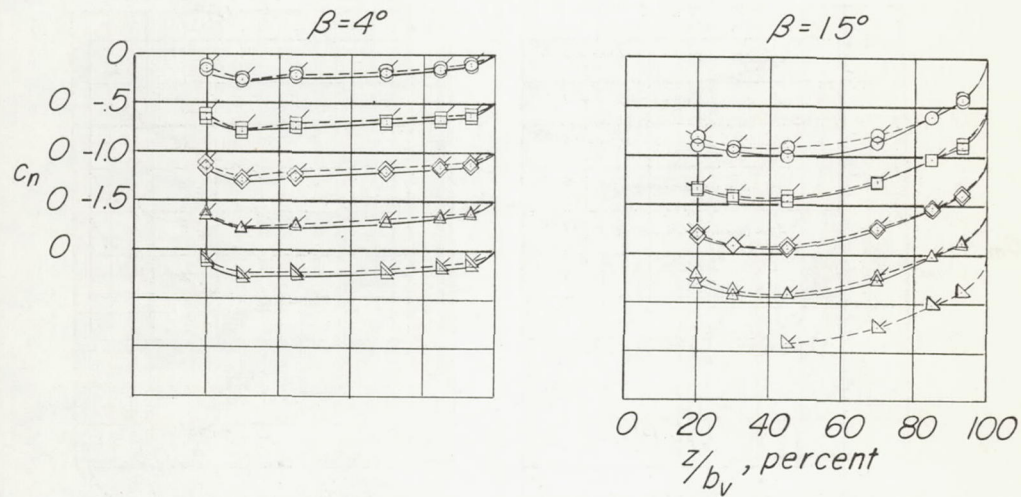 β=4°
β=15°
0
0 -.5
0 -1.0
c_n
0 -1.5
0
0 20 40 60 80 100
z/b_v, percent